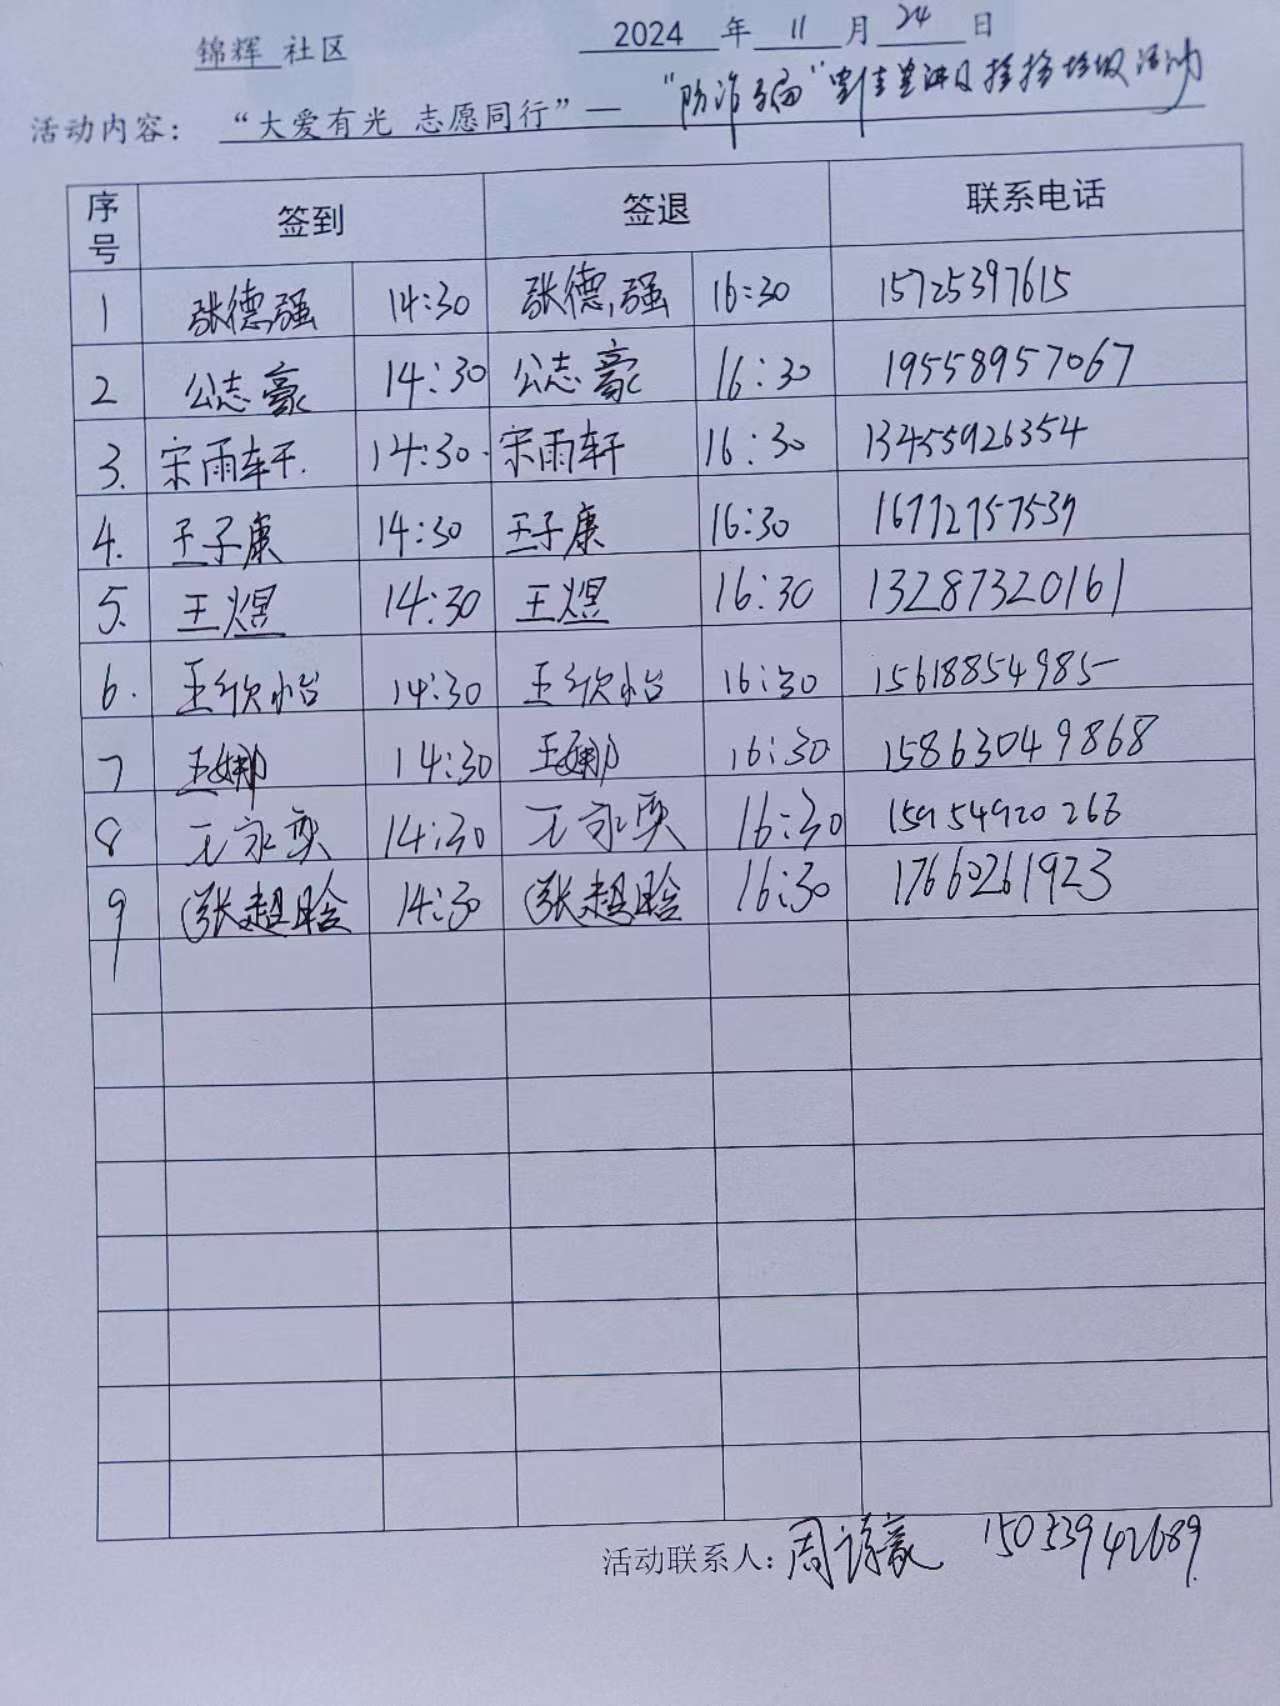 锦辉 社区 2024 年 11 月 24 日
活动内容： “大爱有光 志愿同行”— “防诈骗”宣传宣讲及捡拾垃圾活动
序号 签到 签退 联系电话
1 张德强 14:30 张德强 16:30 15725397615
2 公志豪 14:30 公志豪 16:30 19558957067
3. 宋雨轩. 14:30. 宋雨轩 16:30 13455926354
4. 王子康 14:30 王子康 16:30
5. 王煜 14:30 王煜 16:30 13287320161
6. 王欣怡 14:30 王欣怡 16:30 15618854985
7 王娜 14:30 王娜 16:30 15863049868
8 14:30 16:30 15954920263
9 张超晗 14:30 张超晗 16:30 17660261923
活动联系人：周诗豪 15053942689